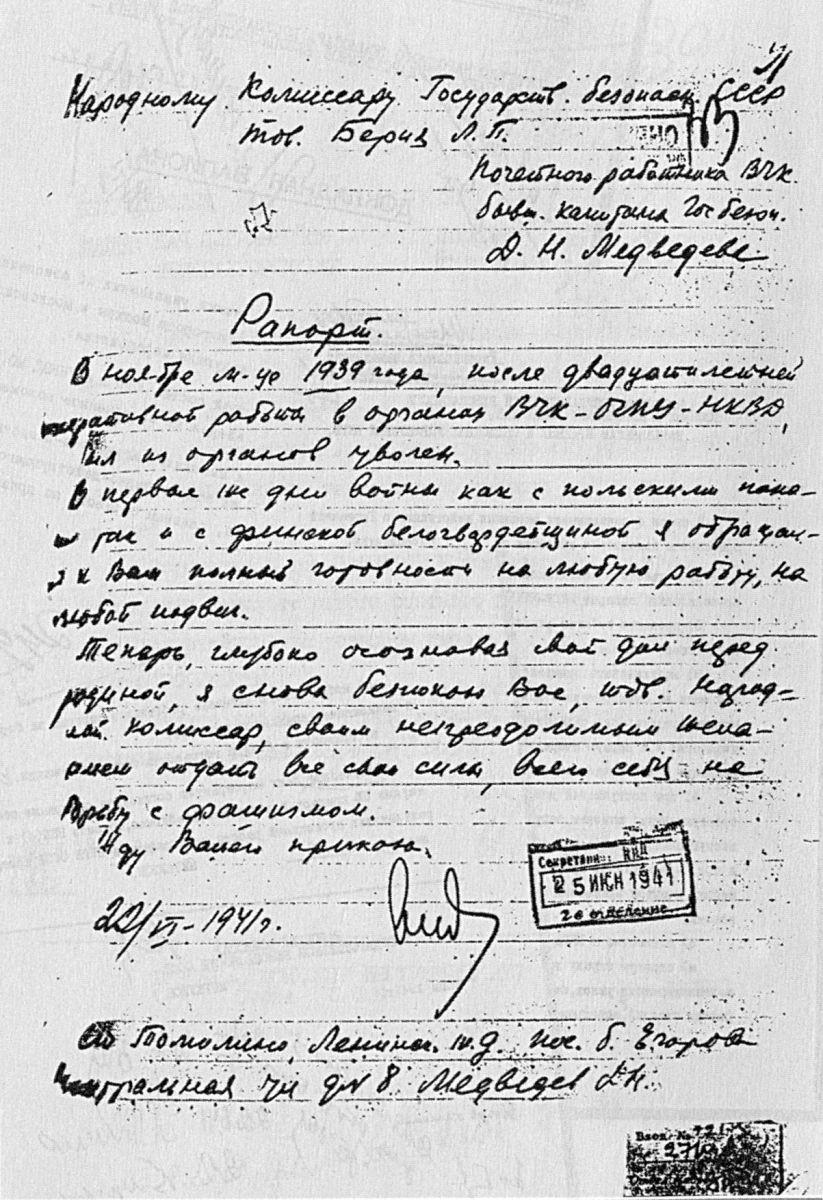 Народному Комиссару Государств. безопасн. СССР
тов. Берия Л.П.
Почетного работника ВЧК
бывш. капитана Госбезоп.
Д. Н. Медведева
Рапорт.
В ноябре м-це 1939 года, после двадцатилетней
оперативной работы в органах ВЧК-ОГПУ-НКВД,
был из органов уволен.
В первые же дни войны как с польскими пана-
так и с финской белогвардейщиной я обращал-
к Вам полный готовности на любую работу, на
любой подвиг.
Теперь, глубоко осознавая свой долг перед
родиной, я снова беспокою Вас, тов. Народ-
ный Комиссар, своим непреодолимым жела-
нием отдать все свои силы, всего себя на
борьбу с фашизмом.
Жду Вашего приказа.
22/VI-1941г.
Секретариат НКВД
25 ИЮН 1941
2-е отделение
Томилино, Ленинск. ж.д. пос. б. Егорова
Центральная ул д№ 8 Медведев Д.Н.
Вход. №